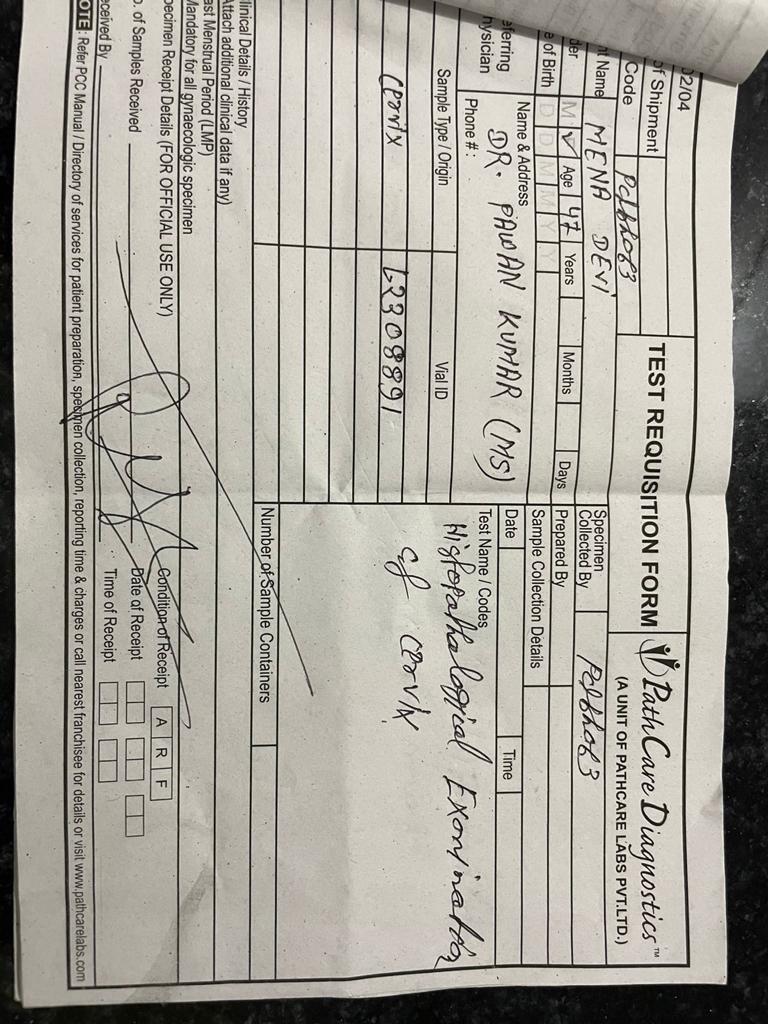 02/04
TEST REQUISITION FORM
PathCare Diagnostics™
(A UNIT OF PATHCARE LABS PVT.LTD.)
of Shipment
Code
nt Name MENA DEVI
Specimen
Collected By
der M ✓ Age 47 Years Months Days
Prepared By
e of Birth D D M M Y Y
Sample Collection Details
eferring
hysician
Name & Address
DR. PAWAN KUMAR (MS)
Phone #:
Date Time
Sample Type / Origin Vial ID
Test Name / Codes
Histopathological Examination
of Cervix
Cervix L2308891
Number of Sample Containers
linical Details / History
Attach additional clinical data if any)
ast Menstrual Period (LMP)
Mandatory for all gynaecologic specimen
pecimen Receipt Details (FOR OFFICIAL USE ONLY)
Condition of Receipt A R F
o. of Samples Received
Date of Receipt
eceived By
Time of Receipt
OTE: Refer POC Manual / Directory of services for patient preparation, specimen collection, reporting time & charges or call nearest franchisee for details or visit www.pathcarelabs.com